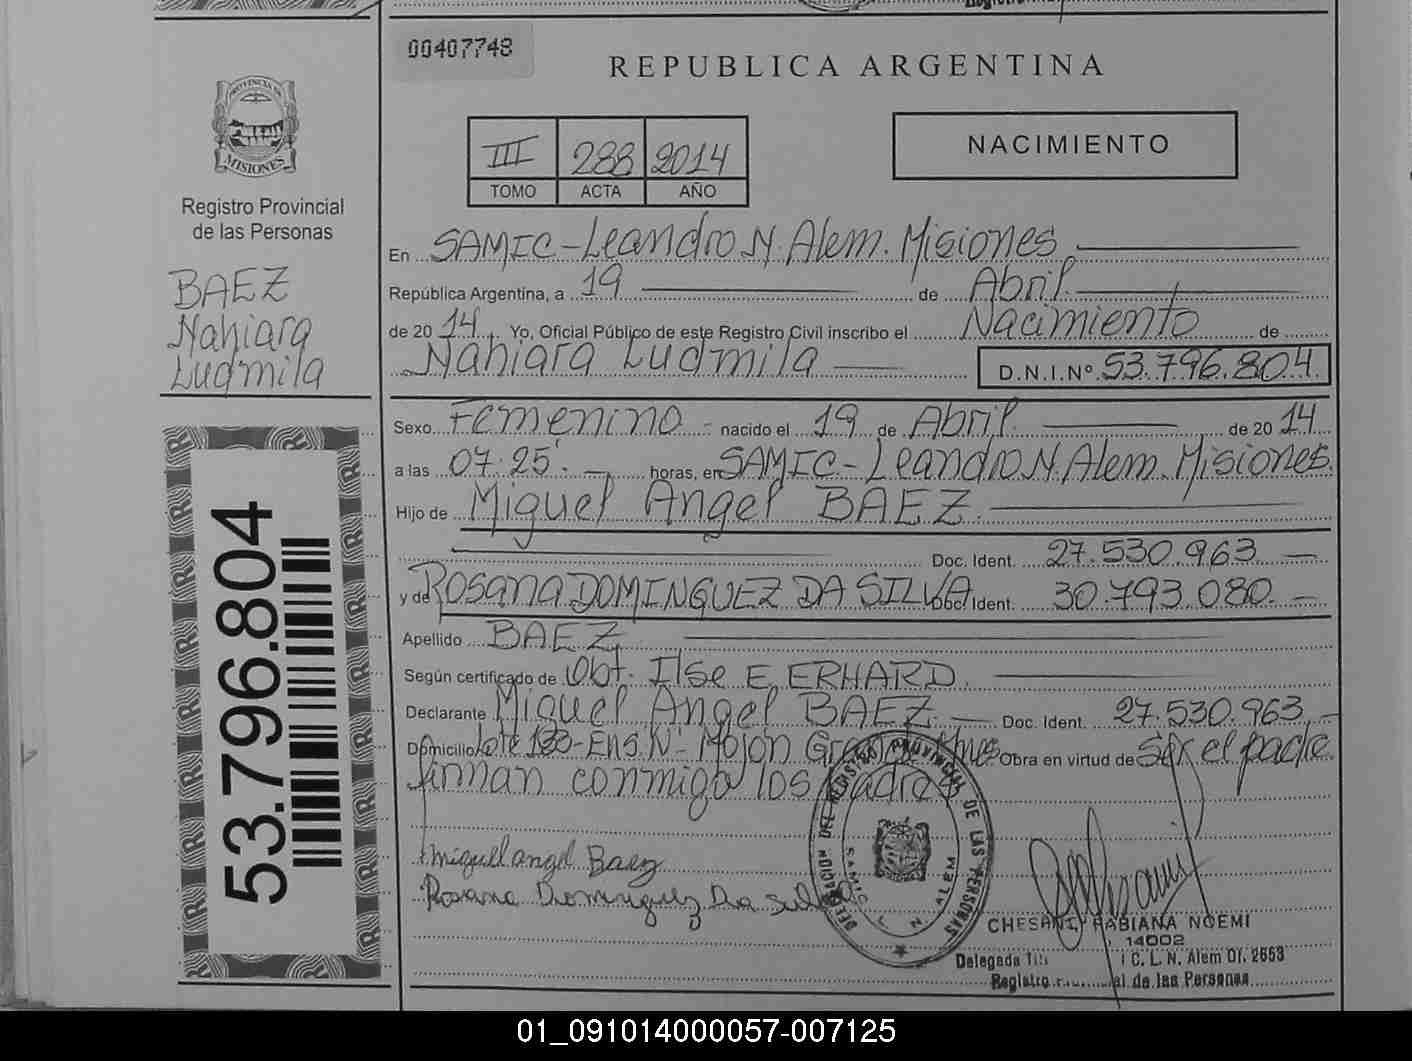 Registro
00407748
REPUBLICA ARGENTINA
PROVINCIA DE
MISIONES
Registro Provincial
de las Personas
BAEZ
Nahiara
Ludmila
III 288 2014
TOMO ACTA AÑO
NACIMIENTO
En SAMIC - Leandro N. Alem. Misiones
República Argentina, a 19 de Abril
de 20 14 Yo, Oficial Público de este Registro Civil inscribo el Nacimiento de
Nahiara Ludmila D.N.I.Nº 53.796.804
Sexo Femenino nacido el 19 de Abril de 20 14
a las 07.25 horas, en SAMIC - Leandro N. Alem. Misiones.
Hijo de Miguel Angel BAEZ
Doc. Ident. 27.530.963
y de ROSANA DOMINGUEZ DA SILVA Doc. Ident. 30.793.080
Apellido BAEZ
Según certificado de Obt. Ilse E ERHARD
Declarante Miguel Angel BAEZ Doc. Ident. 27.530.963
Domicilio Lote 133 - Ens. Nº Mojon Grande Mnes Obra en virtud de Ser el padre
firman conmigo los padres
miguel angel Baez
Rosana Dominguez Da silva
DELEGACION DEL REGISTRO PROVINCIAL DE LAS PERSONAS
SAMIC L N ALEM
CHESANI, FABIANA NOEMI
14002
Delegada C. L. N. Alem Of. 2653
Registro de las Personas
53.796.804
01_091014000057-007125